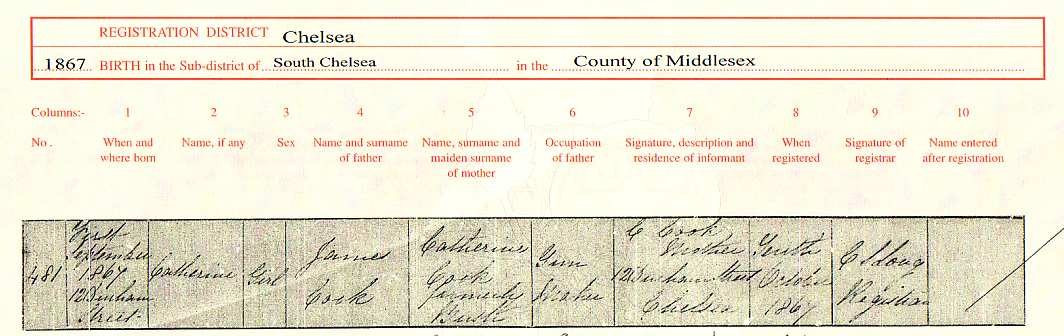 REGISTRATION DISTRICT Chelsea
1867 BIRTH in the Sub-district of South Chelsea in the County of Middlesex
Columns:- 1 2 3 4 5 6 7 8 9 10
No. When and where born Name, if any Sex Name and surname of father Name, surname and maiden surname of mother Occupation of father Signature, description and residence of informant When registered Signature of registrar Name entered after registration
481
First
September
1867
Street
Catherine
Girl
James
Cook
Catherine
Cook
formerly
Maker
C Cook
Mother
Street
Chelsea
Tenth
October
1867
Registrar